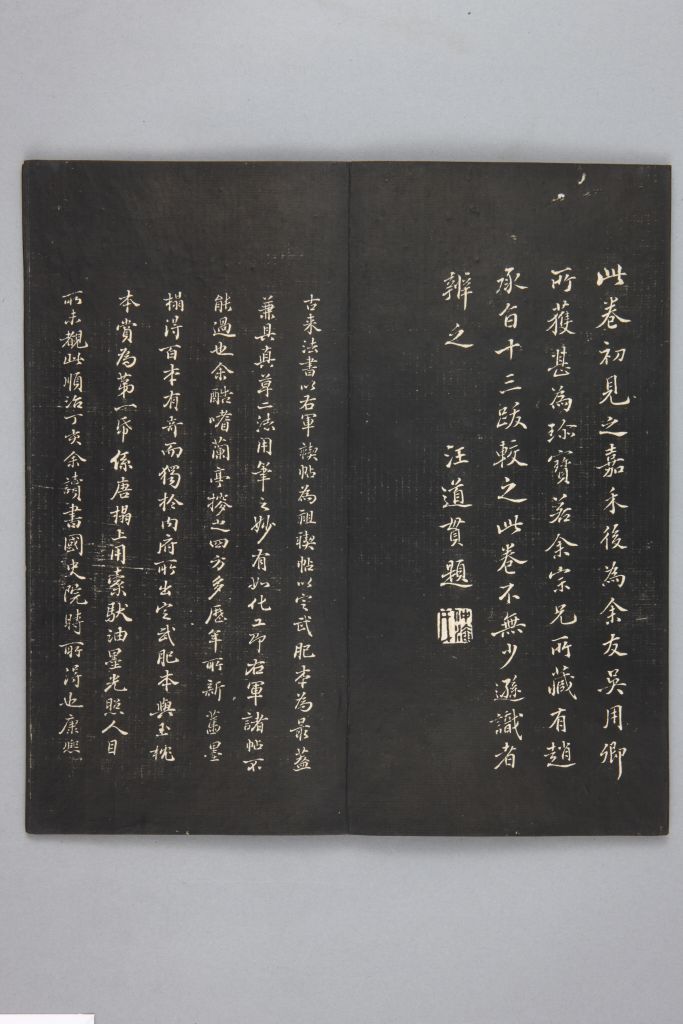 此卷初見之嘉禾後為余友吳用卿
所獲甚為珎寶若余宗兄所藏有趙
承旨十三跋較之此卷不無少遜識者
辨之　汪道貫題
古来法書以右軍禊帖為祖禊帖以定武肥本為最蓋
兼具真草二法用筆之妙有如化工即右軍諸帖不
能過也余酷嗜蘭亭摉之四方多歷年所新舊墨
搨得百本有奇而獨於內府所出定武肥本與玉枕
本賞為第一帋係唐搨上用索馱油墨光照人目
所未覩此順治丁亥余讀書國史院時所得也康熙